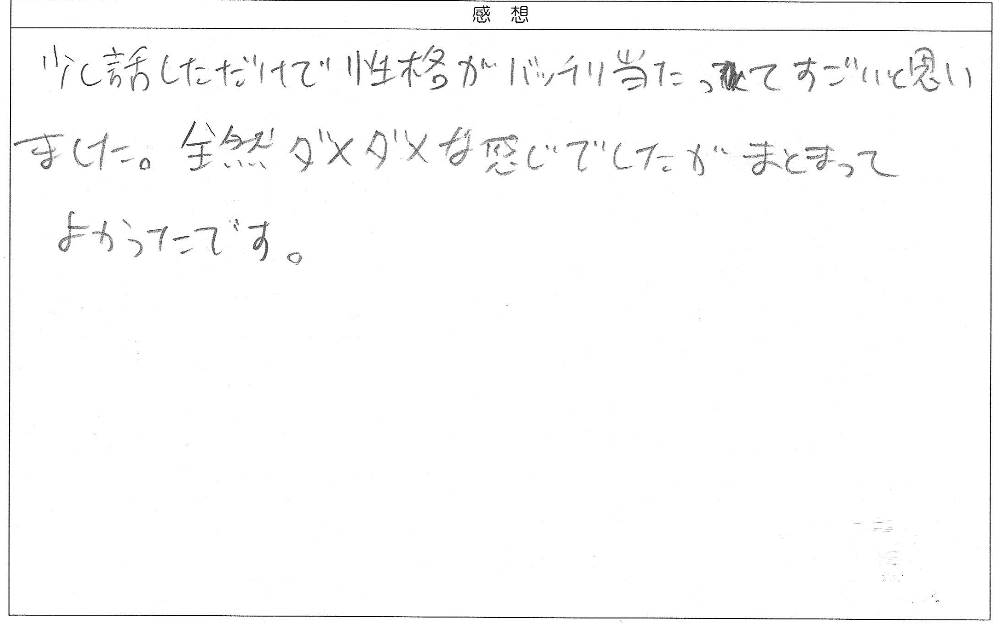 感想
少し話しただけで性格がバッチリ当たってすごいと思い
ました。全然ダメダメな感じでしたがまとまって
よかったです。